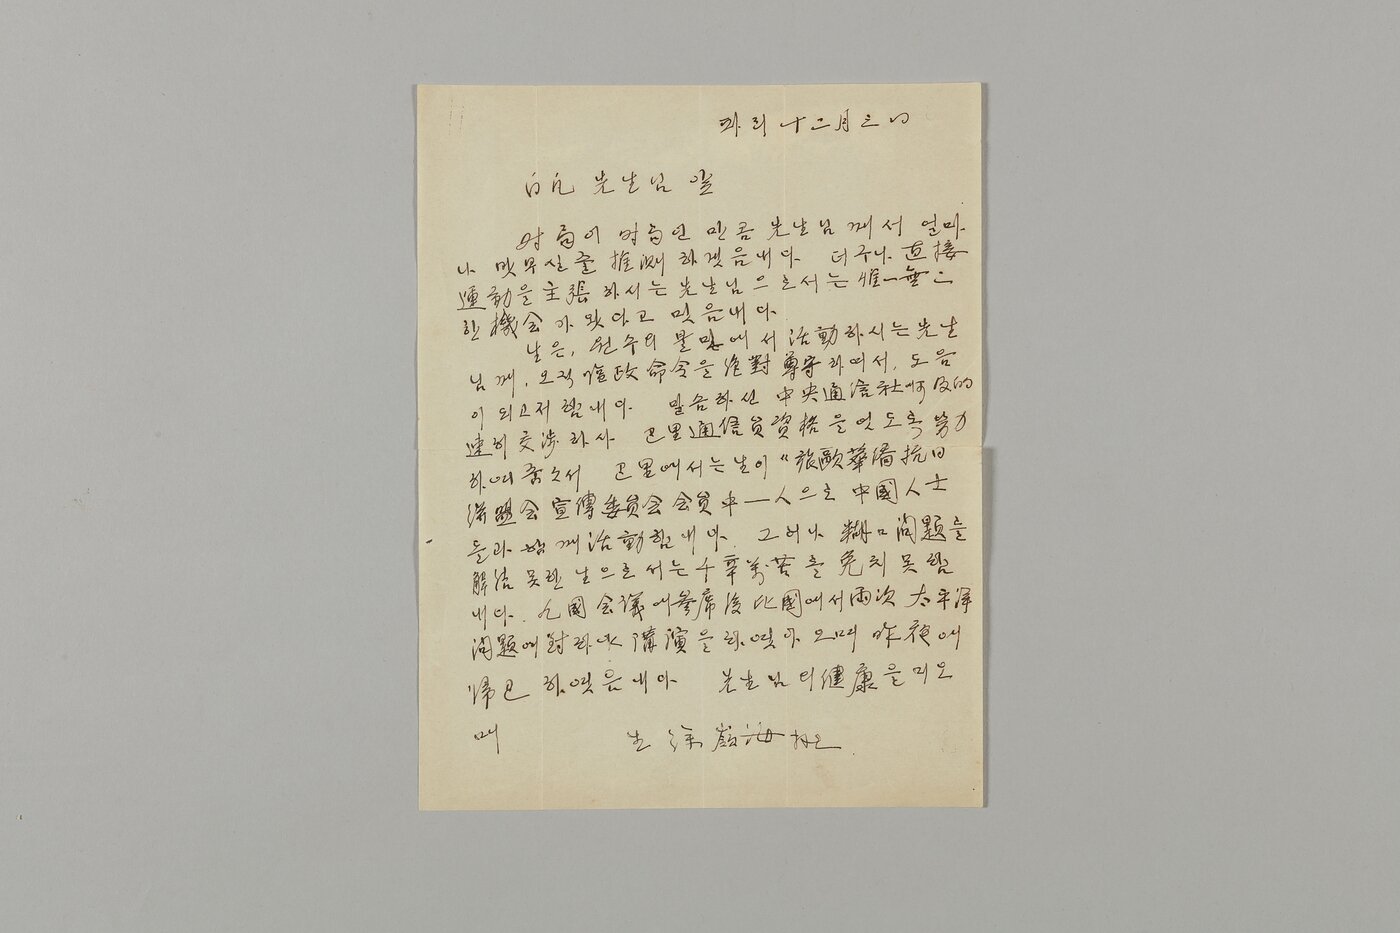 파리 十二月三日
白凡 先生님 앞
時局이 時局인 만큼 先生님께서 얼마
나 밧부실줄 推測하겟음내다. 더구나 直接
運動을 主張하시는 先生님으로서는 惟一無二
한 機会가 왓다고 밋음내다.
生은, 원수의 물밑에서 活動하시는 先生
님께, 오직 命令을 絶對 尊守하여서, 도음
이 되고저 함내다. 말슴하신 中央通信社에
速히 交渉하사 巴里通信員資格을 엇도록 努力
하여 줍소서 巴里에서는 生이 “旅歐華僑抗日
聯盟会 宣傳委員会 会員中 一人으로 中國人士
들과 함께 活動함내다. 그러나 糊口 問題를
解決 못한 生으로서는 千辛萬苦를 免치 못함
내다. 九國会議에 參席後 比國에서 兩次 太平洋
問題에 對하야 講演을 하엿다. 오며 昨夜에
帰巴 하엿음내다. 先生님의 健康을 비오
며 生 徐嶺海 拜上